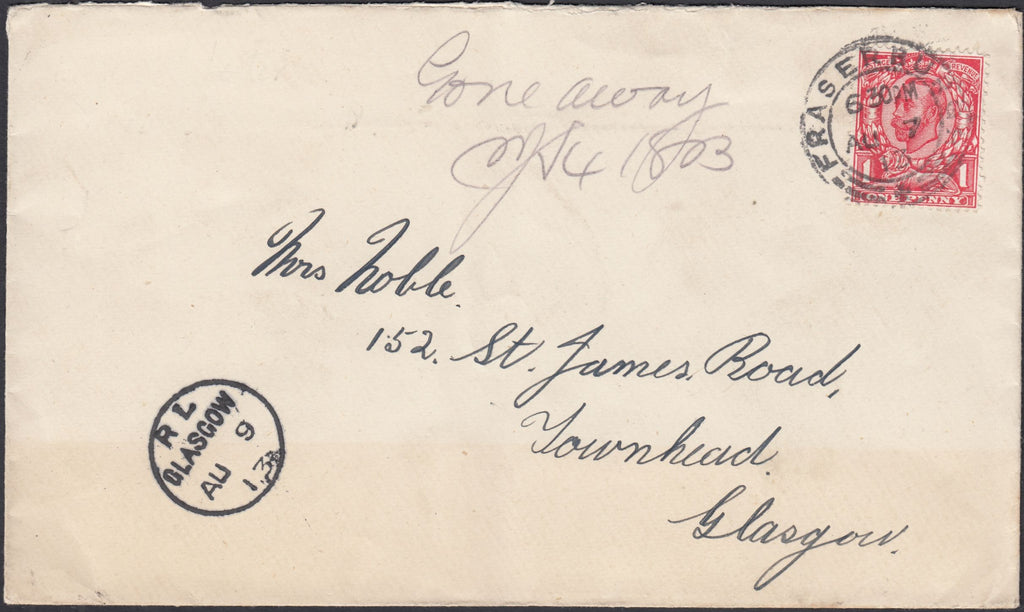 Gone away
FRASERBU
6 30PM
AU 7
13
POSTAGE REVENUE
1 1
ONE PENNY
Mrs Noble
152. St. James Road,
Townhead
Glasgow.
R L
GLASGOW
AU 9
13